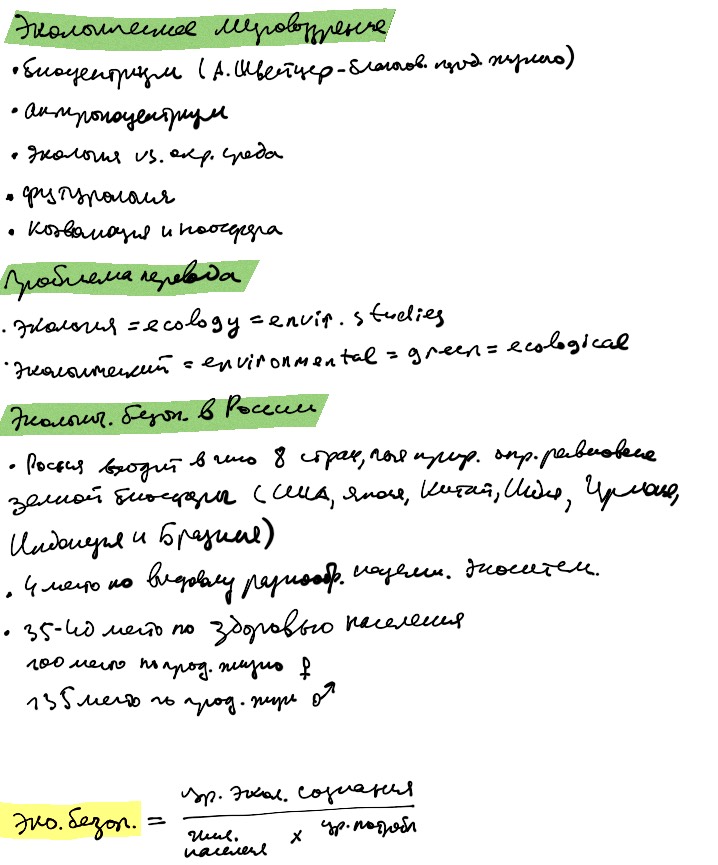 Экологическое мировоззрение
• Биоцентризм (А. Швейцер – благогов. пред жизнью)
• антропоцентризм
• Экология vs. окр. среда
• футурология
• Коэволюция и ноосфера
Проблема перевода
• экология = ecology = envir. studies
• Экологический = environmental = green = ecological
Экологич. безоп. в России
• Россия входит в число 8 стран, чья прир. опр. равновесие
земной биосферы (США, Япония, Китай, Индия, Германия,
Индонезия и Бразилия)
• 4 место по видовому разнообр. наземн. экосистем.
• 35-40 место по здоровью населения
100 место по прод. жизни ♀
135 место по прод. жизни ♂
Эко. безоп. = ур. экол. сознания
числ. населения × ур. потребл